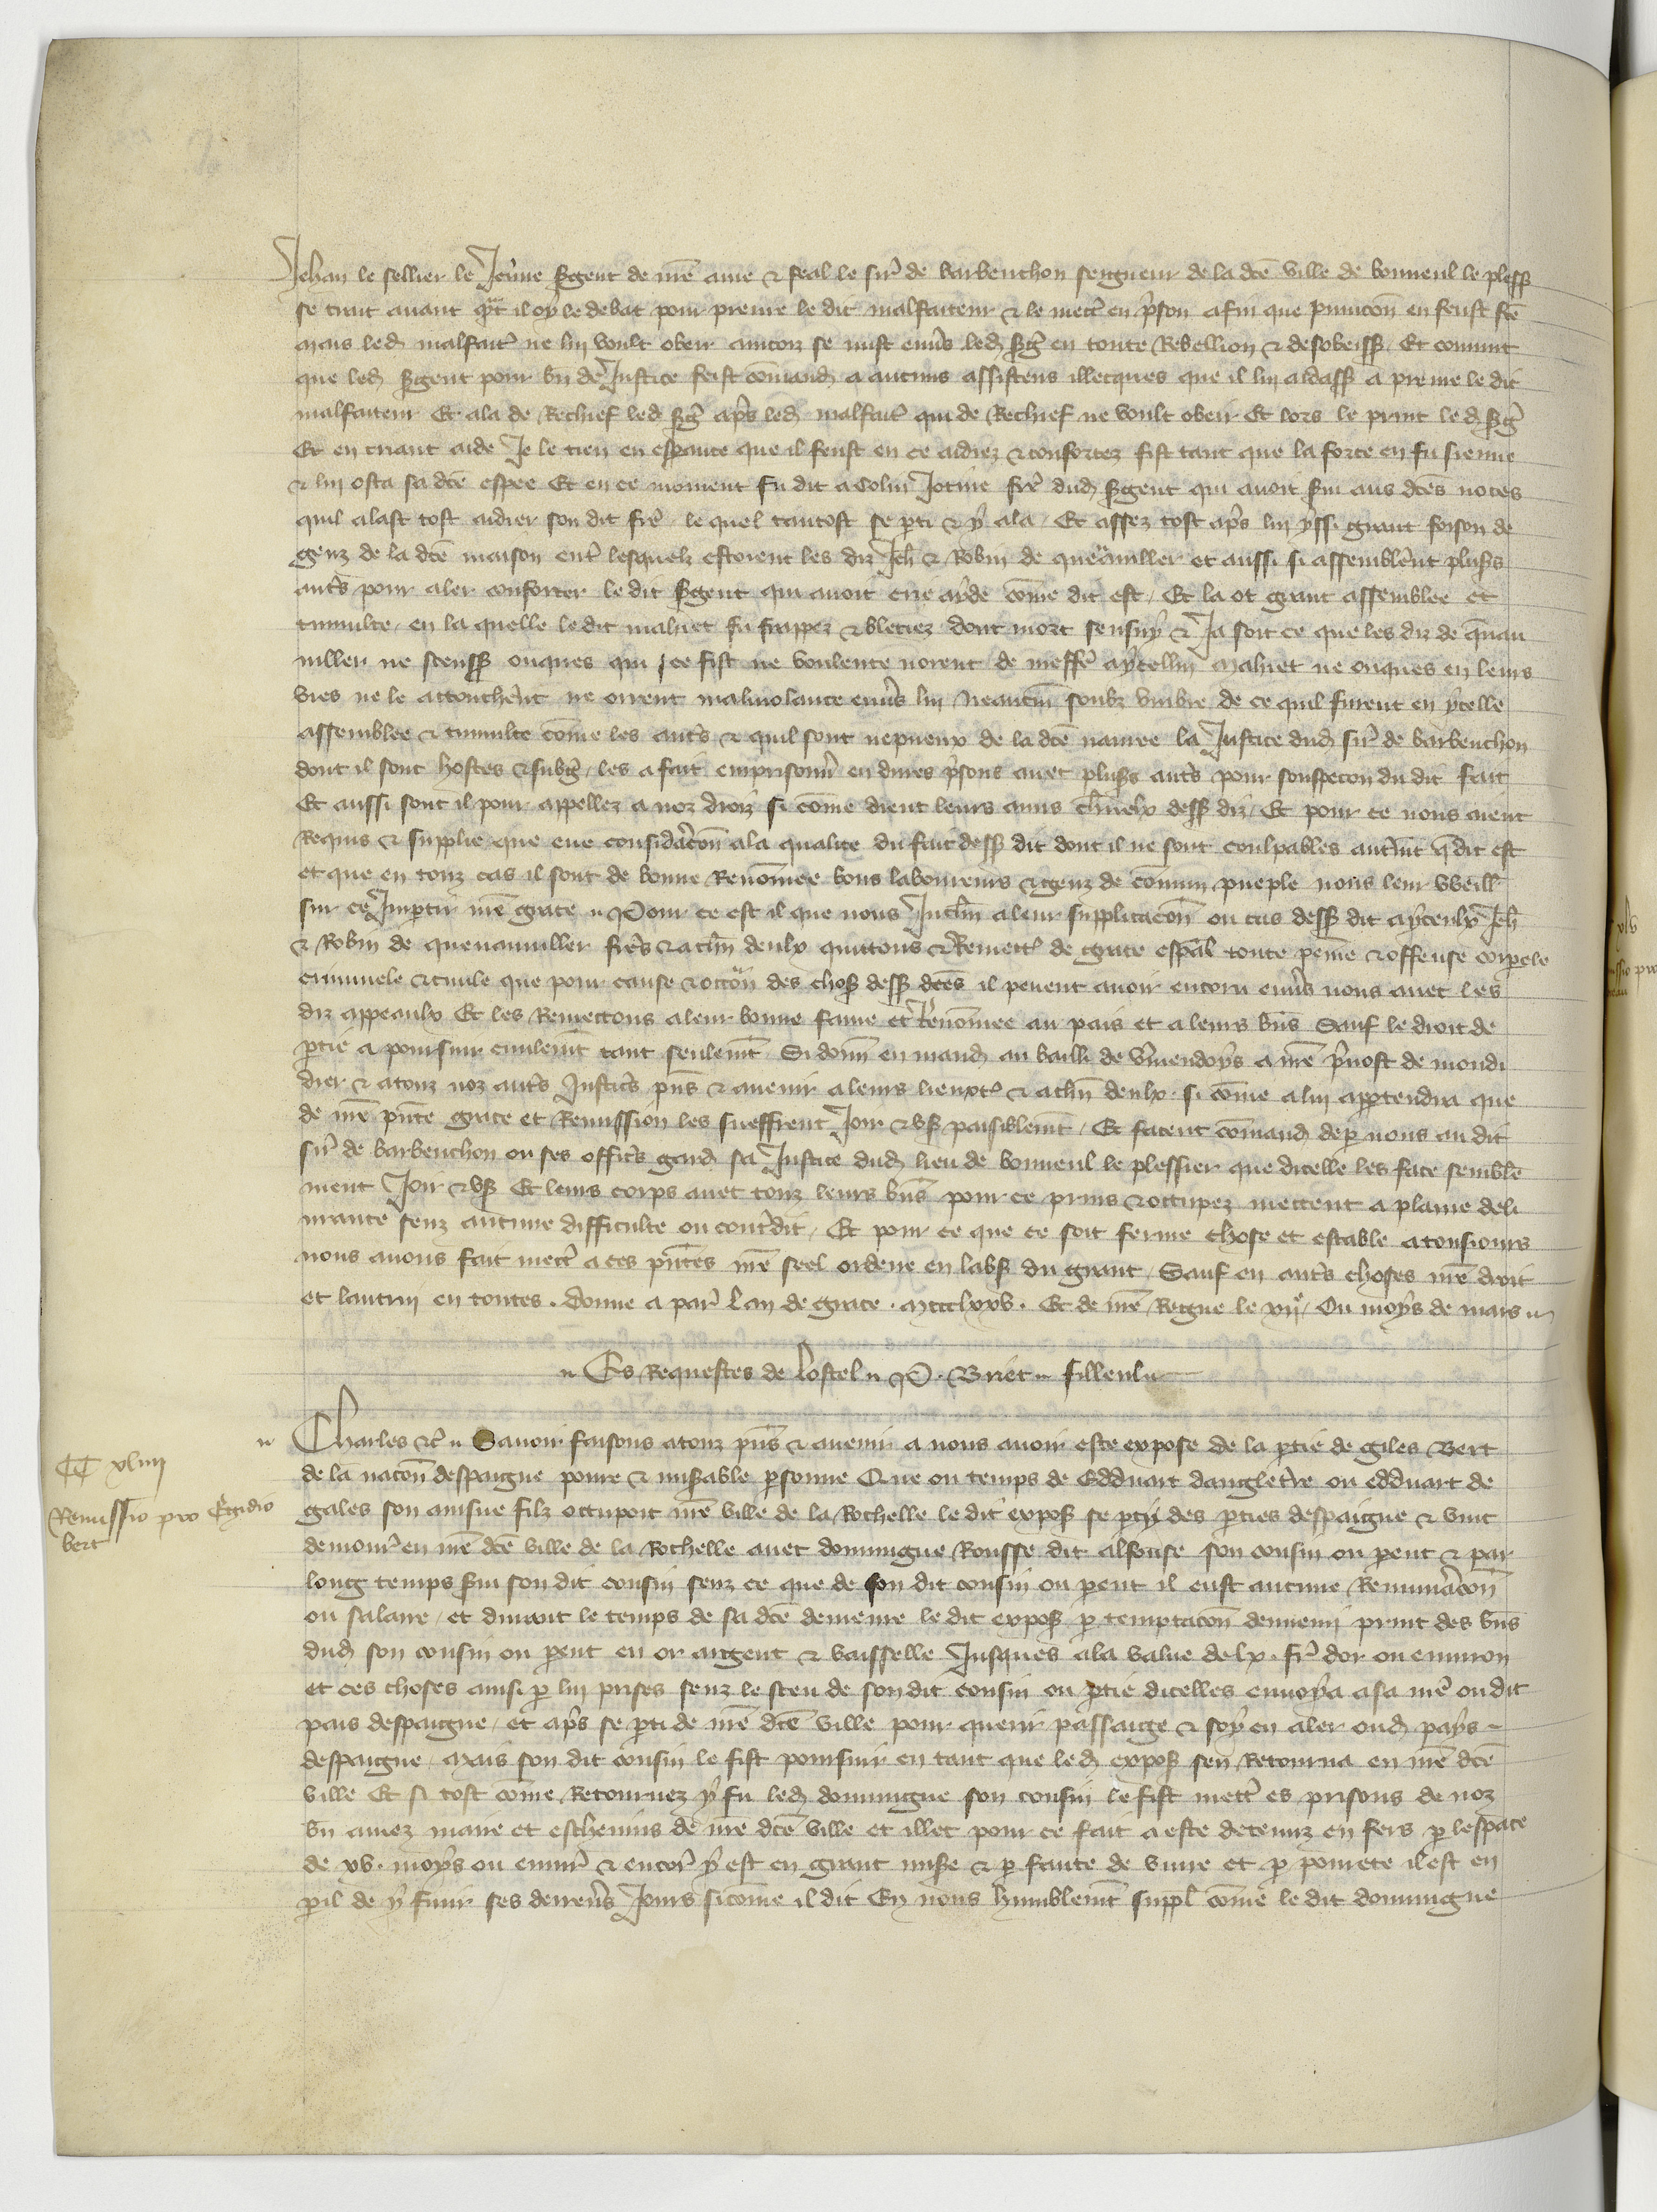 Jehan le sellier le Jeune sgent de nre ame & feal le sire de barbenchon seigneur de la dce ville de bonneul le pless
se traut auant qnt il oy le debat pour prenre le dit malfaiteur & le mectre en pson afin que punicon en feust fce
mais led malfaitr ne lui voult obeir aincoiz se mist enuers led sgt en toute Rebellion & desobeiss Et conuint
que led sgent pour bn de Justice feist comand a aucuns assistens illecques que il lui aidass a prenre le dit
malfaiteur Et ala de Rechief led sgt aps led malfaitr qui de Rechief ne voult obeir Et lors le print led sgt
Et en criant aide Je le tien en espance que il feust en ce aidiez & confortez fist tant que la force en fu sienne
& lui osta sa dce espee Et en ce moment fu dit a Colin Jotine fre dud sgent qui auoit sui aus dces noces
quil alast tost aidier son dit fre le quel tantost se pti & y ala Et assez tost aps lui yssi grant foison de
genz de la dce maison entr lesquelx estoient les diz Jeh & Robin de quenauiller et aussi si assemblerent pluss
autrs pour aler conforter le dit sgent qui auoit crie ayde come dit est Et la ot grant assemblee et
tumulte en la quelle le dit mahiet fu frappez & bleciez dont mort sensuy & Ja soit ce que les diz de quenau
uiller ne sceuss onques qui ce fist ne voulente norent de meffre aycellui Mahiet ne onques en leurs
vies ne le attoucherent ne orrent maliuolance enuers lui Neantm soubz vmbre de ce quil furent en ycelle
assemblee & tumulte come les autrs & quil sont nepueux de la dce nauree la Justice dud sire de barbenchon
dont il sont hostes & subgez les a fait emprisonnr en dures psons auec pluss autrs pour souspecon du dit fait
Et aussi sont il pour appellez a noz droiz si come dient leurs amis charnelx dess diz Et pour ce nous aient
Requis & supplie que eue consideracon ala qualite du fait dess dit dont il ne sont coulpables autremt q dit est
et que en touz cas il sont de bonne Renommee bons laboureurs & genz de comun pueple nous leur vueill
sur ce Impartir nre grace Pour ce est il que nous Inclin a leur supplicacon ou cas dess dit ayceulx Jeh
& Robin de quenauuiller freres & achun deulx quittons & Remett de grace espal toute peine & offense corpele
criminele & ciuile que pour cause & occon des choses dess dces il peuent auoir encoru enuers nous auec les
diz appeaulx Et les Remectons a leur bonne fame et Renommee au pais et a leurs bns Sauf le droit de
ptie a poursuir ciuilemt tant seulemt Si donn en mand au bailli de vrmendoys a nre puost de mondi
dier & a touz noz autrs Justics pns & auenir a leurs lieuxt & achun deulx si come a lui apptendra que
de nre pnte grace et Remission les sueffrent Joir & vs paisiblemt Et facent comand de p nous au dit
sire de barbenchon ou ses offics gard sa Justice dud lieu de bonneul le plessier que dicelle les face semble
ment Joir & vs Et leurs corps auec touz leurs bns pour ce prins & occupez mectent a plaine deli
urance senz aucune difficulte ou contredit Et pour ce que ce soit ferme chose et estable a tousiours
nous auons fait mectr a ces pntes nre seel ordene en labs du grant Sauf en autrs choses nre droit
et lautrui en toutes. Donne a paris Lan de grace . mccclxxv. Et de nre Regne le xije Ou moys de mars
Es Requestes de Lostel P. Briet filleul
CC xliiij
Remissio pro Egidio
bert
Charles &c Sauoir faisons a touz pns & auenir a nous auoir este expose de la ptie de giles Bert
de la nacon despaigne poure & misable psonne Que ou temps de Edduart dangletre ou edduart de
gales son ainsne filz occupoit nre ville de la Rochelle le dit expos se pty des pties despaigne & vint
demourer en nre dce ville de la Rochelle auec domingue Rousse dit alfonse son cousin ou pent & par
long temps sui son dit cousin senz ce que de son dit cousin ou pent il eust aucune Remuneracon
ou salaire et durant le temps de sa dce demeure le dit expos p temptacon dennemi print des bns
dud son cousin ou pent en or argent & vaisselle Jusques ala value de lx. frs dor ou enuiron
et ces choses ainsi p lui prises senz le sceu de son dit cousin ou ptie dicelles enuoya a sa mere ou dit
pais despaigne et aps se pti de nre dce ville pour querir passaige & soy en aler oud pays
despaigne Mais son dit cousin le fist poursuir en tant que led expos sen Retourna en nre dce
ville Et si tost come Retournez y fu led domingue son cousin le fist mettr es prisons de noz
bn amez maire et escheuins de nre dce ville et illec pour ce fait a este detenuz en fers p lespace
de xv. moys ou enuir & encor y est en grant mise & p faute de viure et p pourete il est en
pil de y finir ses derreners Jours si come il dit En nous humblemt suppl come le dit domingue